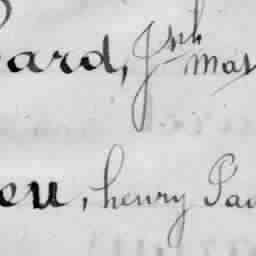 ard, Jph mas
eu, henry Pau